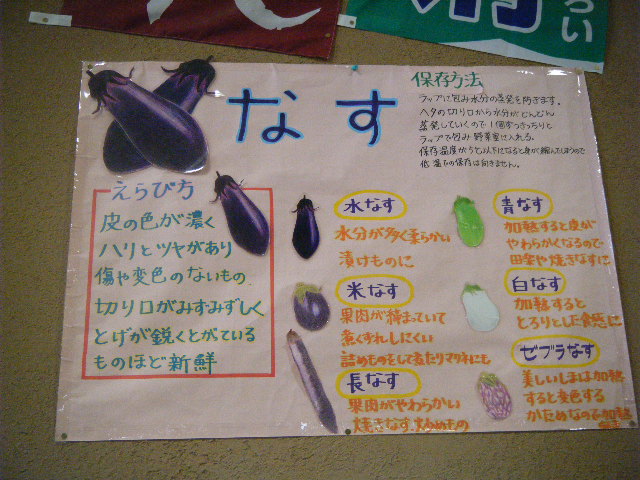 なす
保存方法
ラップに包み水分の蒸発を防ぎます。
ヘタの切り口から水分がどんどん
蒸発していくので1個ずつきっちりと
ラップで包み野菜室に入れる。
保存温度が5℃以下になると身が縮んでしまうので
低温での保存は向きません。
えらび方
皮の色が濃く
ハリとツヤがあり
傷や変色のないもの
切り口がみずみずしく
とげが鋭くとがている
ものほど新鮮
水なす
水分が多く柔らかい
漬けものに
米なす
果肉が締まっていて
煮くずれしにくい
詰めものをして煮たりマリネにも
長なす
果肉がやわらかい
焼きなす、炒めもの
青なす
加熱すると皮が
やわらかくなるので
田楽や焼きなすに
白なす
加熱すると
とろりとした食感に
ゼブラなす
美しいしまは加熱
すると変色する
かためなので加熱